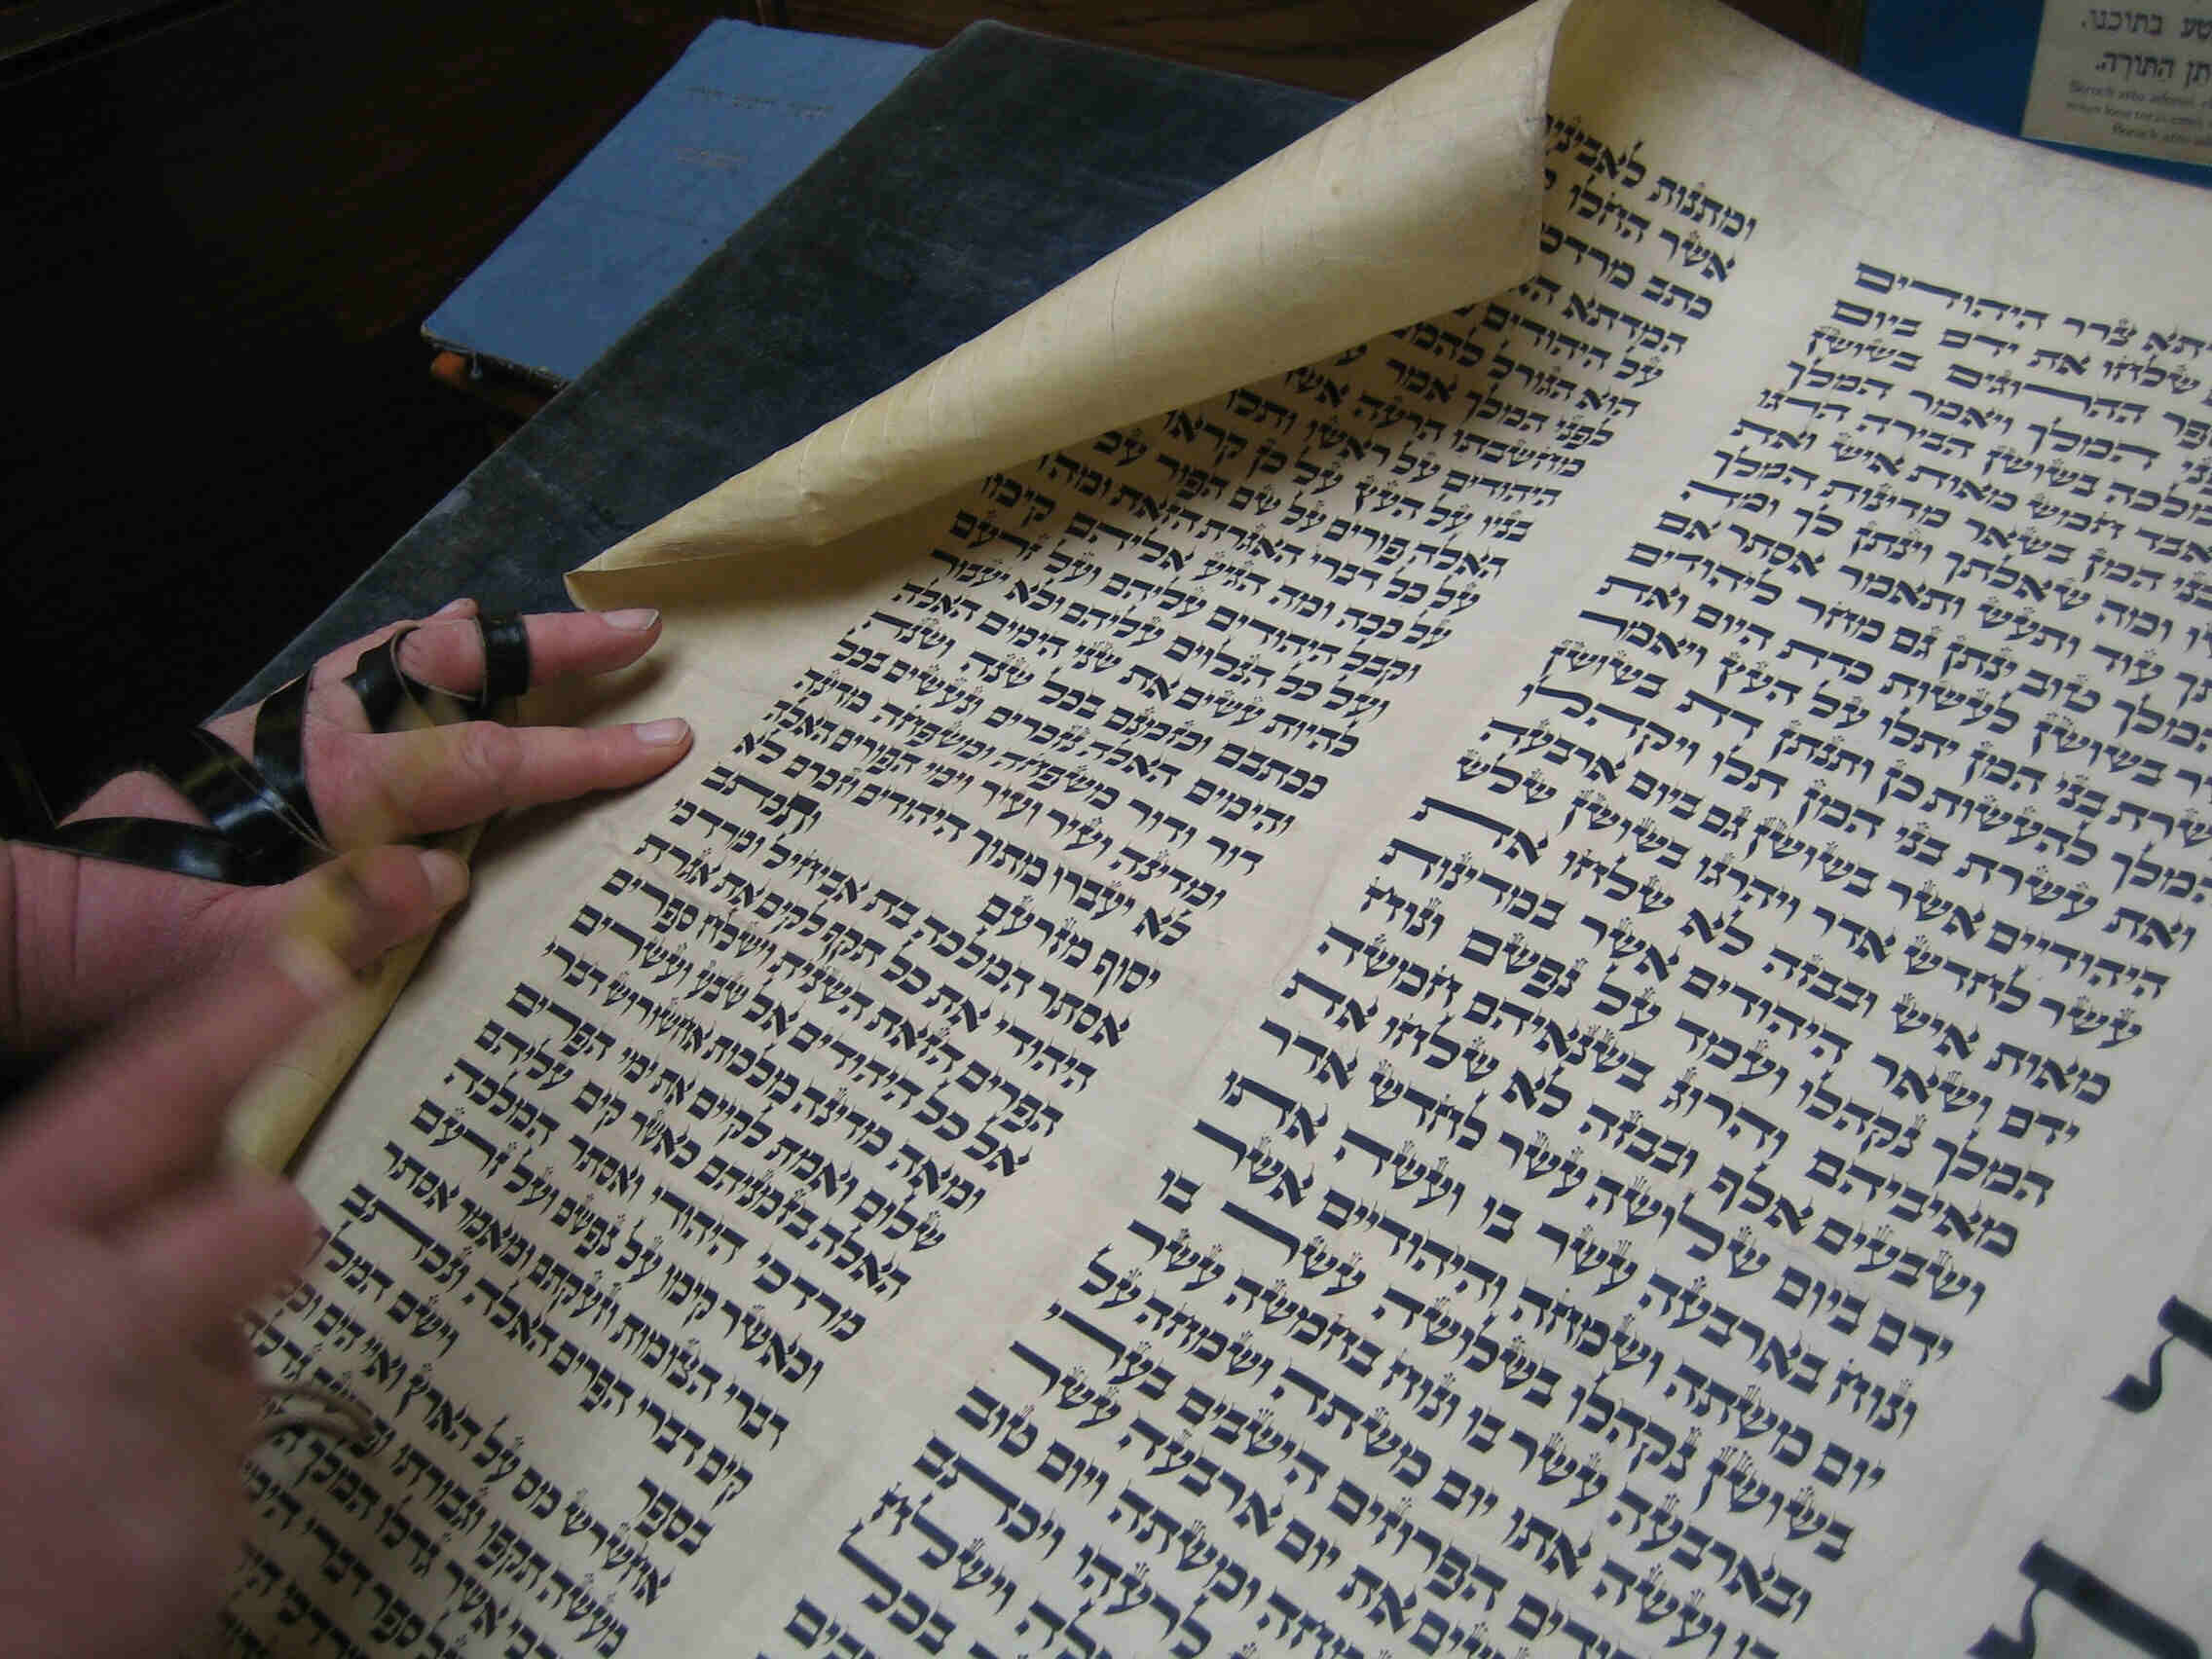 צרר היהודים
שלחו את ידם ביום
ההרוגים בשושן
המלך ויאמר המלך
מלכה בשושן הבירה הרגו
אבד חמש מאות איש ואת
בני המן בשאר מדינות המלך
ומה שאלתך וינתן לך ומה
עוד ותעש ותאמר אסתר אם
המלך טוב ינתן גם מחר ליהודים
בשושן לעשות כדת היום ואת
שרת בני המן יתלו על העץ ויאמר
המלך להעשות כן ותנתן דת בשושן
ואת עשרת בני המן תלו ויקהלו
היהודיים אשר בשושן גם ביום ארבעה
עשר לחדש אדר ויהרגו בשושן שלש
מאות איש ובבזה לא שלחו את
ידם ושאר היהודים אשר במדינות
המלך נקהלו ועמד על נפשם ונוח
מאיביהם והרוג בשנאיהם חמשה
ושבעים אלף ובבזה לא שלחו את
ידם ביום שלושה עשר לחדש אדר
ונוח בארבעה עשר בו ועשה אתו
יום משתה ושמחה והיהודיים אשר
בשושן נקהלו בשלושה עשר בו
ובארבעה עשר בו ונוח בחמשה עשר
בו ועשה אתו יום משתה ושמחה על
הפרוזים הישבים בערי
את יום ארבעה עשר
ומשתה ויום טוב
לרעהו ויכתב
וישלח
בכל
ומתנות
אשר החלו
כתב
המדתא
על היהודים
הוא הגורל
לפני המלך אמר
מחשבתו הרעה אשר
היהודים על ראשו ותלו
בניו על העץ על כן קראו
האלה פורים על שם הפור על
על כל דברי האגרת הזאת ומה
על ככה ומה הגיע אליהם קימו
וקבל היהודים עליהם ועל זרעם
ועל כל הנלוים עליהם ולא יעבור
להיות עשים את שני הימים האלה
ככתבם וכזמנם בכל שנה ושנה
והימים האלה נזכרים ונעשים בכל
דור ודור משפחה ומשפחה מדינה
ומדינה ועיר ועיר וימי הפורים האלה
לא יעברו מתוך היהודים וזכרם לא
יסוף מזרעם ותכתב
אסתר המלכה בת אביחיל ומרדכי
היהודי את כל תקף לקים את אגרת
הפרים הזאת השנית וישלח ספרים
אל כל היהודים אל שבע ועשרים
ומאה מדינה מלכות אחשורוש דברי
שלום ואמת לקיים את ימי הפרים
האלה בזמניהם כאשר קים עליהם
מרדכי היהודי ואסתר המלכה
וכאשר קימו על נפשם ועל זרעם
דברי הצומות וזעקתם ומאמר אסתר
קים דברי הפרים האלה ונכתב
בספר וישם
אחשרש מס על הארץ ואיי הים
מעשה תקפו וגבורתו
אשר גדלו המלך
ספר דברי
בתוכנו.
התורה.